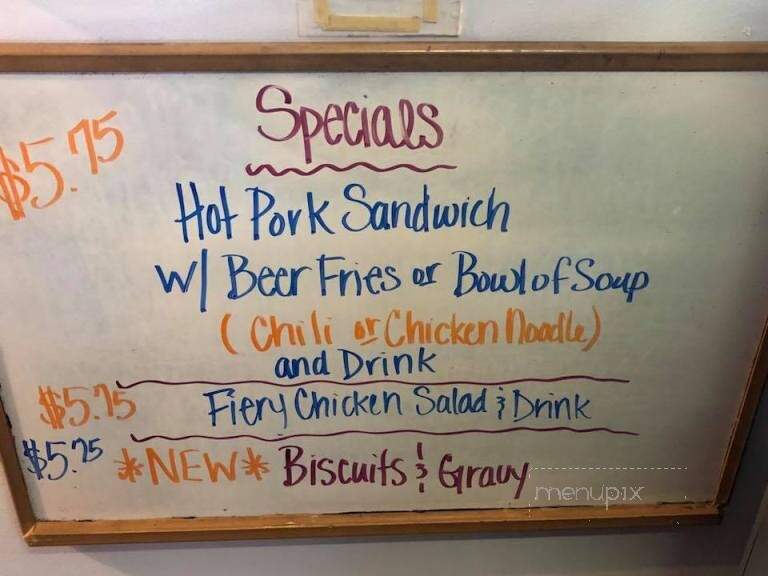 Specials
$5.75
Hot Pork Sandwich
w/ Beer Fries or Bowl of Soup
(Chili or Chicken Noodle)
and Drink
$5.75 Fiery Chicken Salad & Drink
$5.25 *NEW* Biscuits & Gravy
menupix